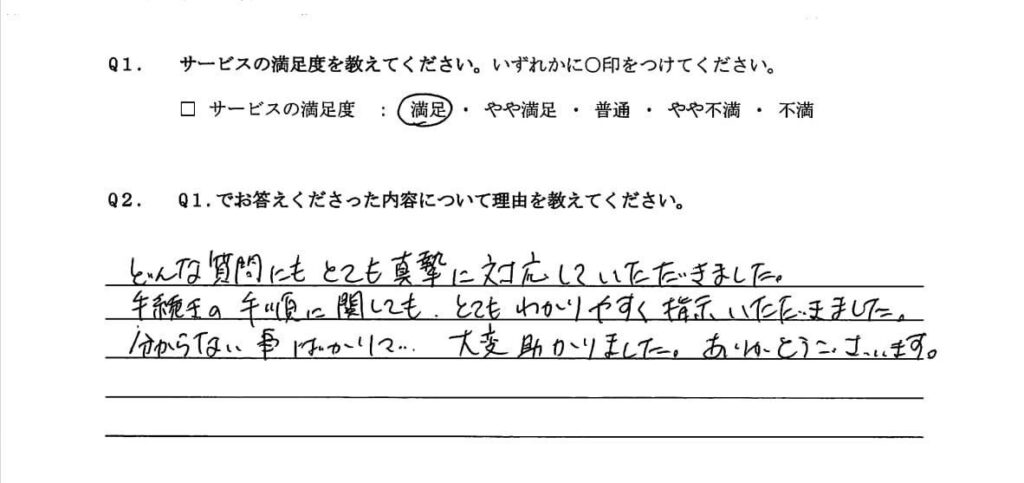 Q1. サービスの満足度を教えてください。いずれかに〇印をつけてください。
□ サービスの満足度 : 満足 ・ やや満足 ・ 普通 ・ やや不満 ・ 不満
Q2. Q1.でお答えくださった内容について理由を教えてください。
どんな質問にもとても真摯に対応していただきました。
手続きの手順に関しても、とてもわかりやすく指示いただきました。
分からない事ばかりで… 大変助かりました。ありがとうございます。